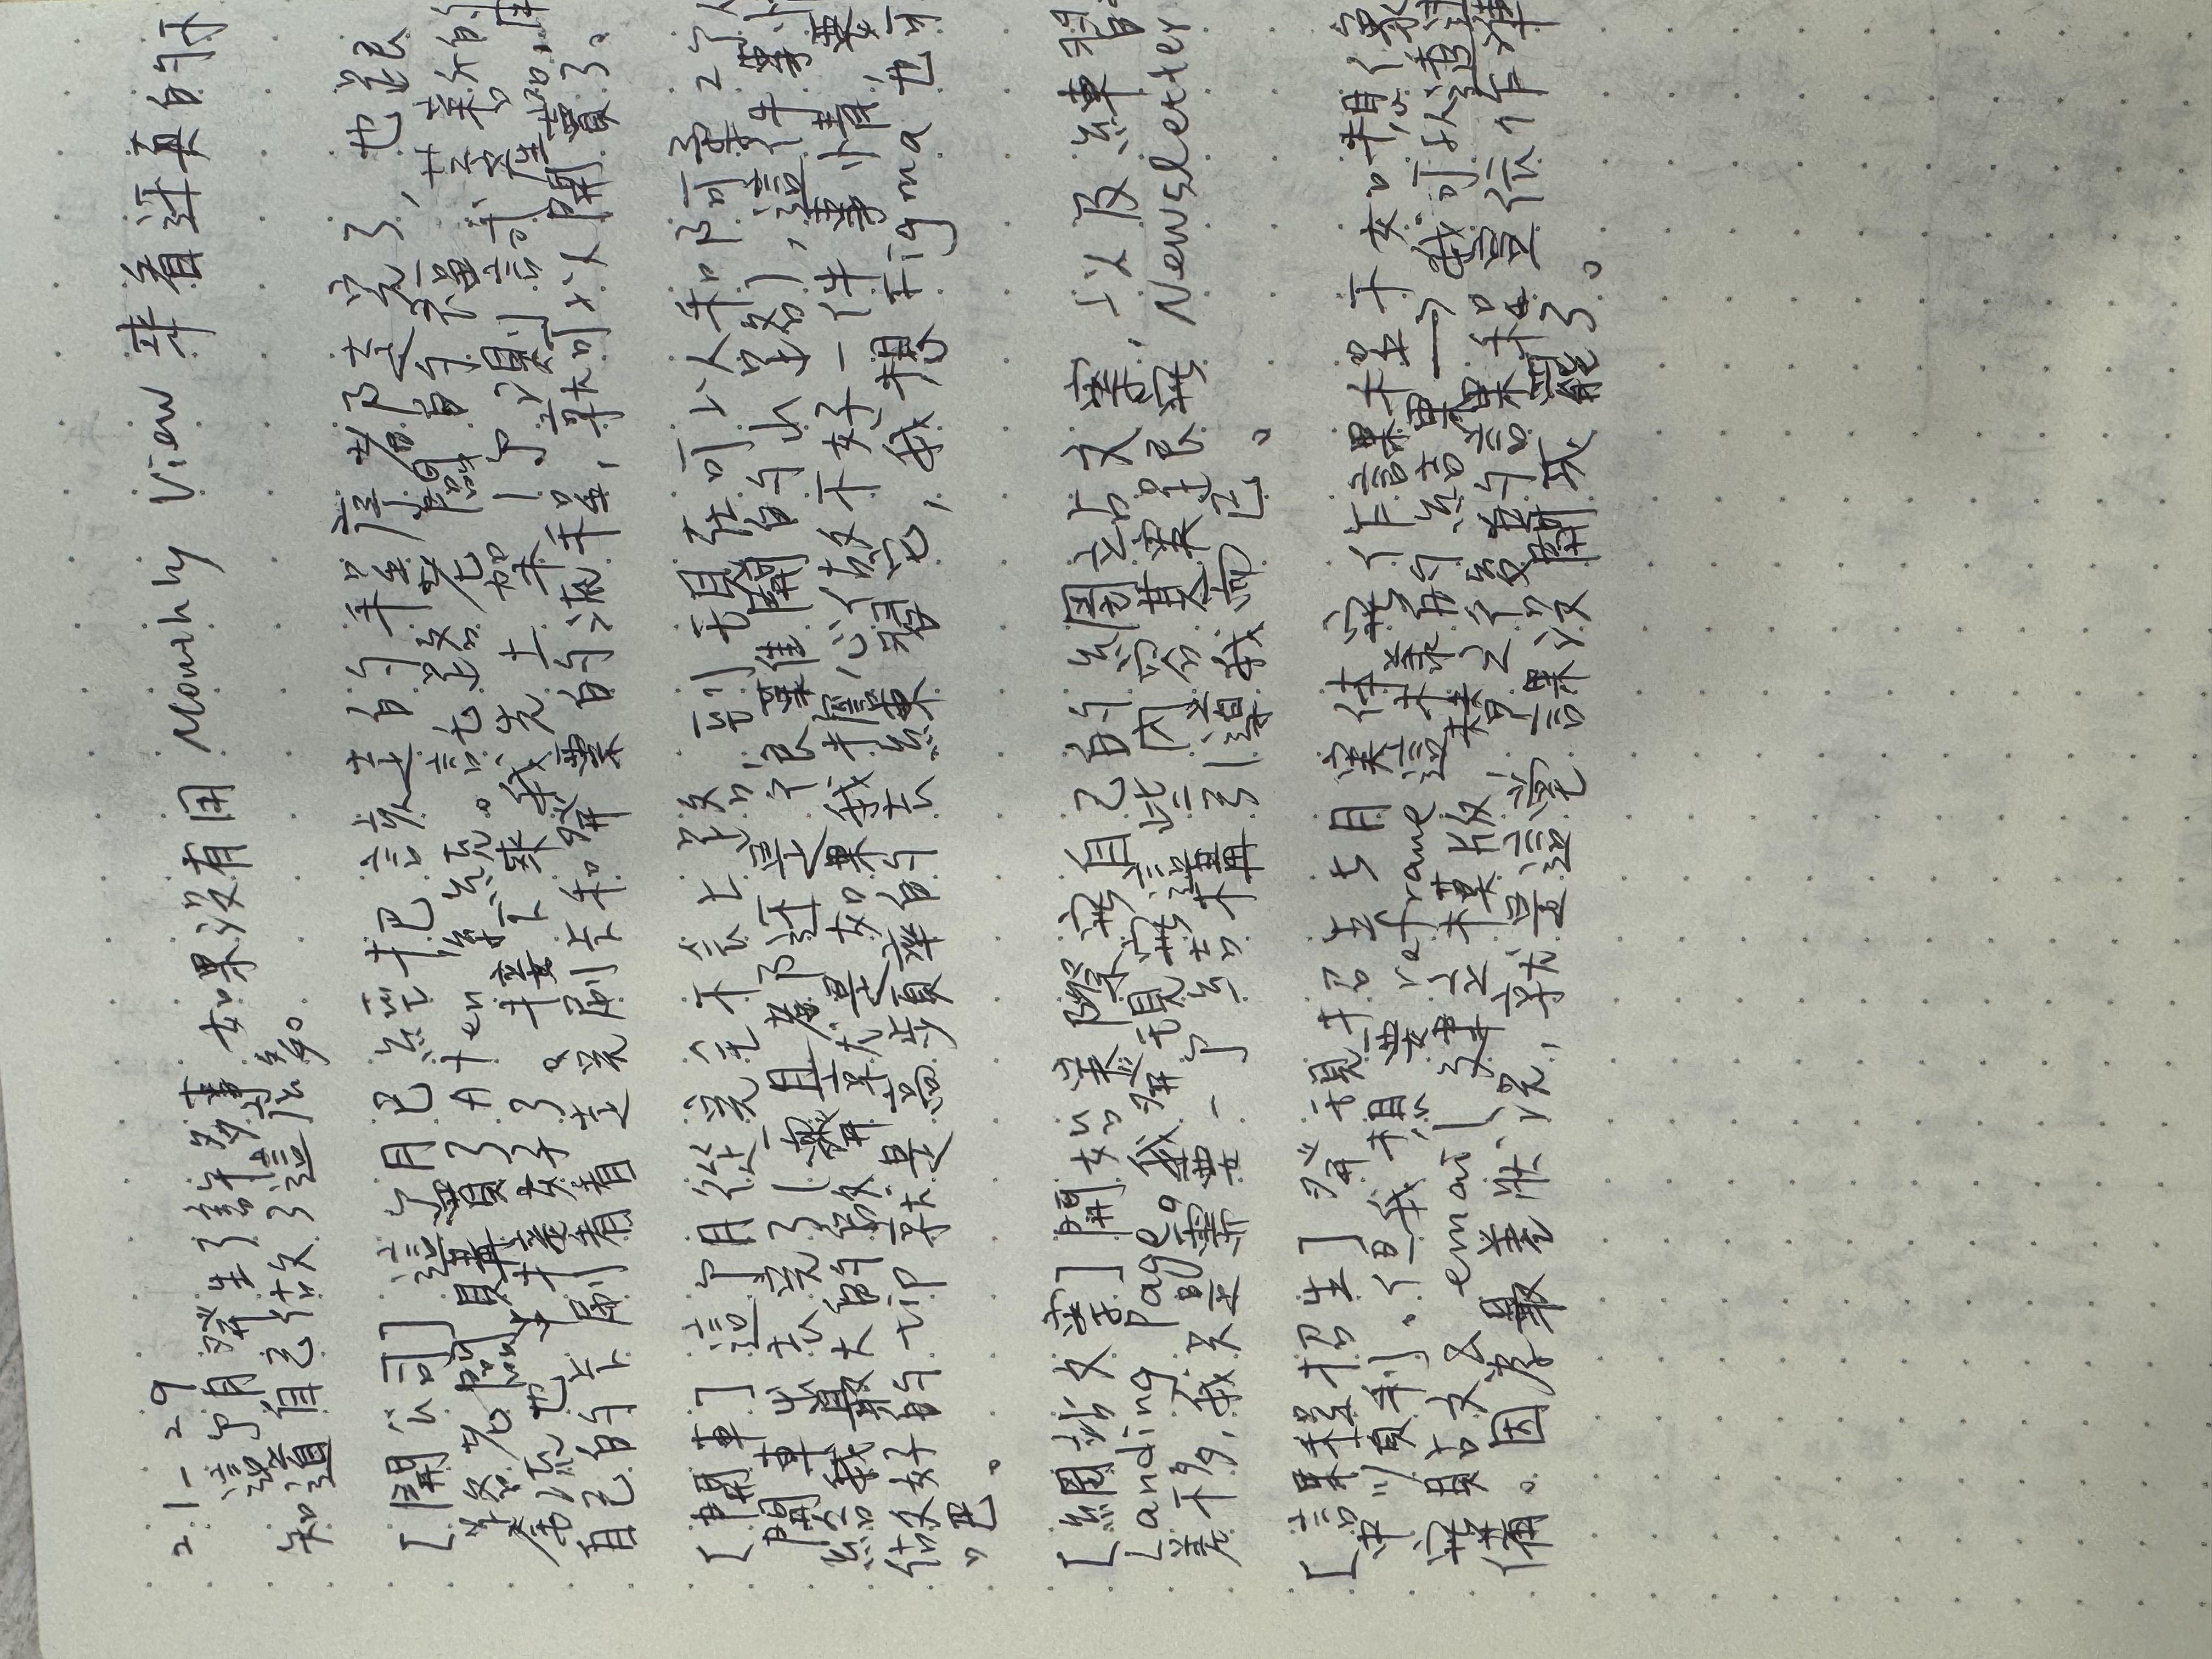 2.1-29
這个月發生了許多事,如果沒有用 Monthly View 來看还真的不
知道自己做了這麼多。
[開公司] 這个月已經把該走的程序都走完了,也跟
路老闆購買了 Aten 系統。託路老闆的福,藍新的
金流也串接好了。接下來我先上架1个測試產品,用
自己的卡刷看看走完刷卡和發票的流程,就可以開賣了。
[開車] 這个月從完全不会上路,到現在可以和阿柔2个人
開車出去玩了(而且都还是很難開的山路),這件事情
給我最大的啟發就是如果我擔心做不好一件事情,要
做好的 tip 就是高頻率的去練習它,我想 Figma 也可
吧。
[網站文案] 開始實際寫自己的網站文案,以及練習
Landing Page。我發現寫這些內容其實跟寫 Newsletter
差不多,我只是需要一个結構引導我而已。
[課程招生] 發現招生5月实体寫作課程不如想像
中順利。但我想要 reframe 這樣的結果→我可以透過
寫貼文及 email 建立模版,替之後的課程宣传作準
備。因為最差狀況,就是這堂課沒開成罷了。